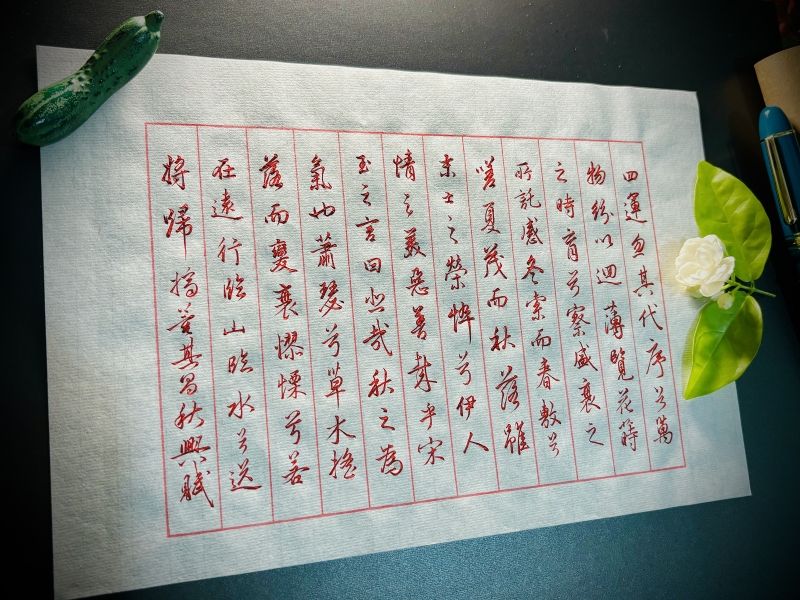 四運忽其代序兮萬
物紛以迴薄覽花蒔
之時育兮察盛衰之
所託感冬索而春敷兮
嗟夏茂而秋落雖
末士之榮悴兮伊人
情之美惡善哉乎宋
玉之言曰悲哉秋之為
氣也蕭瑟兮草木搖
落而變衰憭慄兮若
在遠行臨山臨水兮送
將歸 摘董其昌秋興賦